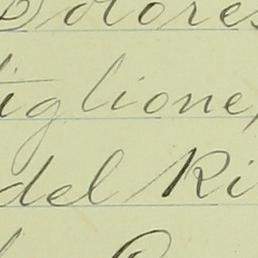 Dolores
tiglione,
del Ri